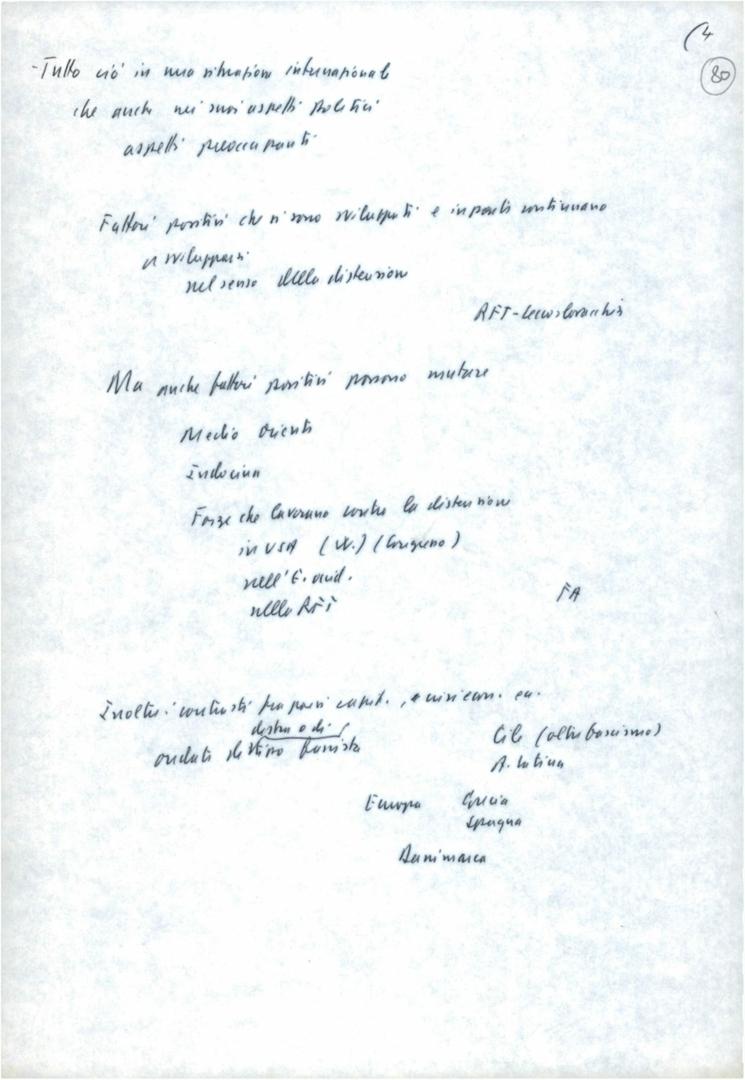 (4
80
- Tutto ciò in una situazione internazionale
che anche nei suoi aspetti politici
aspetti preoccupanti
Fattori positivi che si sono sviluppati e in parte continuano
a svilupparsi
nel senso della distensione
RFT - Cecoslovacchia
Ma anche fattori positivi possono mutare
Medio Oriente
Indocina
Forze che lavorano contro la distensione
in USA (W.) (Congresso)
nell'E. occid.
nella RFT
FA
Inoltre: contrasti fra paesi capit.,
destra o di
ondate fascista
Cile (oltre fascismo)
A. Latina
Europa Grecia
Spagna
Danimarca